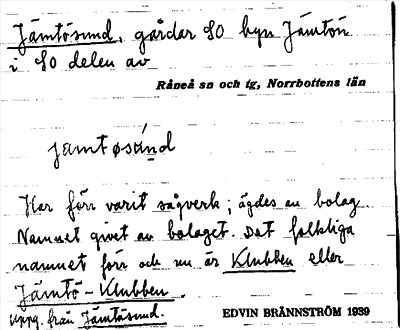 Jämtösund, gårdar SO byn Jämtön
i SO delen av
Råneå sn och tg, Norrbottens län
jamtøsúnd
Har förr varit sågverk; ägdes av bolag.
Namnet givet av bolaget. Det folkliga
namnet förr och nu är Klubben eller
Jämtö-Klubben.
Uppg. från Jämtösund.
EDVIN BRÄNNSTRÖM 1939